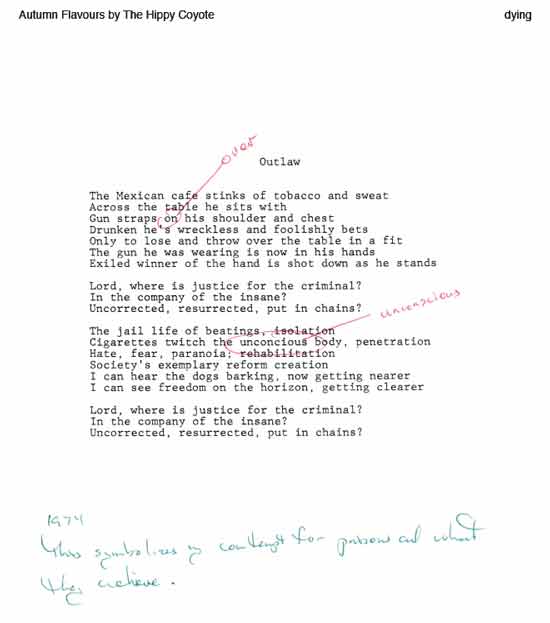 Autumn Flavours by The Hippy Coyote dying
over
Outlaw
The Mexican cafe stinks of tobacco and sweat
Across the table he sits with
Gun straps on his shoulder and chest
Drunken he's wreckless and foolishly bets
Only to lose and throw over the table in a fit
The gun he was wearing is now in his hands
Exiled winner of the hand is shot down as he stands
Lord, where is justice for the criminal?
In the company of the insane?
Uncorrected, resurrected, put in chains?
unconscious
The jail life of beatings, isolation
Cigarettes twitch the unconcious body, penetration
Hate, fear, paranoia; rehabilitation
Society's exemplary reform creation
I can hear the dogs barking, now getting nearer
I can see freedom on the horizon, getting clearer
Lord, where is justice for the criminal?
In the company of the insane?
Uncorrected, resurrected, put in chains?
1974
This symbolizes my contempt for prisons and what
they achieve.